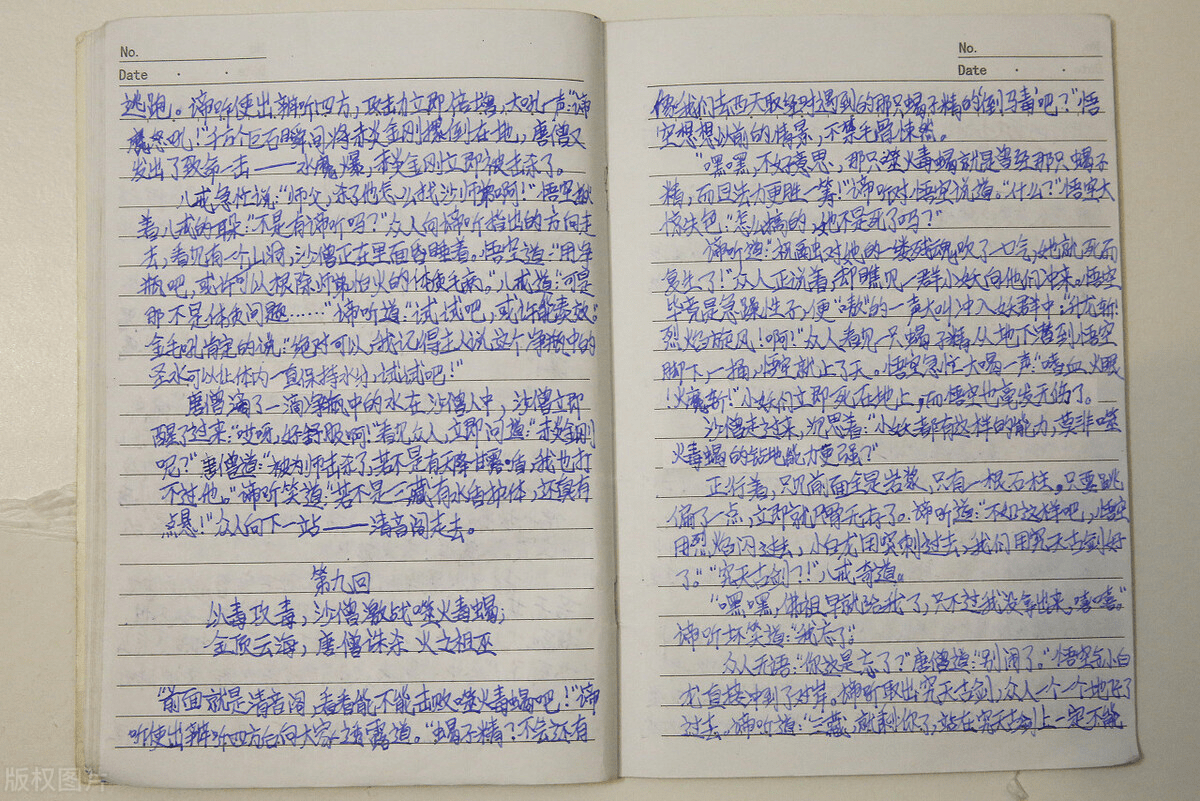 No.
Date
逃跑。谛听使出辨听四方,攻击力立即倍增,大吼一声:“谛
听怒吼!”千万个巨石瞬间将赤炎金刚撂倒在地,唐僧又
发出了致命一击——水魔爆,赤炎金刚立即被击杀了。
八戒急忙说:“师父,杀了他怎么找沙师弟啊!”悟空揪
着八戒的耳朵:“不是有谛听吗?”众人向谛听指出的方向走
去,看见有一个山洞,沙僧正在里面昏睡着。悟空道:“用净
瓶吧,或许可以根除师弟怕火的体质毛病。”八戒道:“可是
那不是体质问题……”谛听道:“试试吧,或许能奏效。”
金毛吼肯定的说:“绝对可以,我记得主人说这个净瓶中的
圣水可以让体内一直保持水分,试试吧!”
唐僧滴了一滴净瓶中的水在沙僧人中,沙僧立即
醒了过来:“哎呀,好舒服啊!”看见众人,立即问道:“赤炎金刚
呢?”唐僧道:“被为师击杀了,若不是有天降甘露盾,我也打
不过他。”谛听笑道:“若不是三藏有水盾护体,还真有
点悬!”众人向下一站——清音阁走去。
第九回
以毒攻毒,沙僧激战噬火毒蝎;
金顶云海,唐僧诛杀火之祖巫
“前面就是清音阁,看看能不能击败噬火毒蝎吧!”谛
听使出辨听四方后向大家透露道。“蝎子精?不会还有
No.
Date
像我们去西天取经时遇到的那只蝎子精的‘倒马毒’吧?”悟
空想想以前的情景,不禁毛骨悚然。
“嘿嘿,不好意思,那只噬火毒蝎就是曾经那只蝎子
精,而且法力更胜一筹!”谛听对悟空说道。“什么?”悟空大
惊失色:“怎么搞的,她不是死了吗?”
谛听道:“祖巫对她的一缕残魂吹了一气,她就死而
复生了!”众人正说着,却瞧见一群小妖向他们冲来。悟空
毕竟是急躁性子,便“嗷”的一声大叫冲入妖群中:“升龙斩!
烈焰旋风!啊!”众人看见一只蝎子精从地下遁到悟空
脚下,一捅,悟空就上了天。悟空急忙大喝一声:“嗜血火眼
!火魔斩!”小妖们立即死在地上,而悟空也毫发无伤了。
沙僧走过来,沉思着:“小妖都有这样的能力,莫非噬
火毒蝎的钻地能力更强?”
正行着,只见前面全是岩浆,只有一根石柱。只要跳
偏了一点,立即就尸骨无存了。谛听道:“不如这样吧,悟空
用烈焰闪过去,小白龙用突刺过去,我们用究天古剑好
了。”“究天古剑?!”八戒奇道。
“嘿嘿,佛祖早就给我了,只不过我没拿出来,嘻嘻。”
谛听坏笑道:“我忘了。”
众人无语:“你这是忘了?”唐僧道:“别闹了。”悟空与小白
龙直接冲到了对岸。谛听取出究天古剑,众人一个一个地
过去。谛听道:“三藏,就剩你了,站在究天古剑上一定不能
版权图片